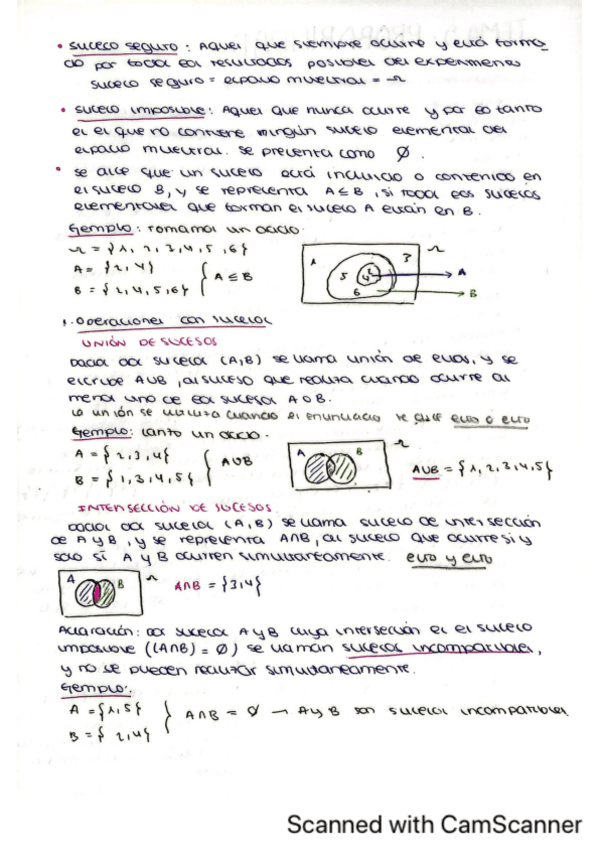 • suceso seguro: Aquel que siempre ocurre y está forma_
do por todos los resultados posibles del experimento
suceso seguro = espacio muestral = Ω
• suceso imposible: Aquel que nunca ocurre y por lo tanto
es el que no contiene ningún suceso elemental del
espacio muestral. Se presenta como Ø.
• se dice que un suceso está incluido o contenido en
el suceso B, y se representa A ⊆ B, si todos los sucesos
elementales que forman el suceso A están en B.
Ejemplo: tomamos un dado.
Ω = {1, 2, 3, 4, 5, 6}
A = {2, 4}
B = {2, 4, 5, 6}
A ⊆ B
1 3 Ω
5 2 4 A
6 B
1. Operaciones con sucesos
UNIÓN DE SUCESOS
Dados dos sucesos (A, B) se llama unión de ellos, y se
escribe A∪B, al suceso que realiza cuando ocurre al
menos uno de los sucesos A o B.
la unión se utiliza cuando el enunciado te dice esto o esto
Ejemplo: lanzo un dado.
A = {2, 3, 4}
B = {1, 3, 4, 5}
A∪B
A B Ω
A∪B = {1, 2, 3, 4, 5}
INTERSECCIÓN DE SUCESOS
Dados dos sucesos (A, B) se llama suceso de intersección
de A y B, y se representa A∩B, al suceso que ocurre si y
solo sí A y B ocurren simultáneamente. esto y esto
A B Ω
A∩B = {3, 4}
Aclaración: dos sucesos A y B cuya intersección es el suceso
imposible ((A∩B) = Ø) se llaman sucesos incompatibles,
y no se pueden realizar simultáneamente.
Ejemplo:
A = {1, 5}
B = { 2, 4}
A∩B = Ø → A y B son sucesos incompatibles.
Scanned with CamScanner